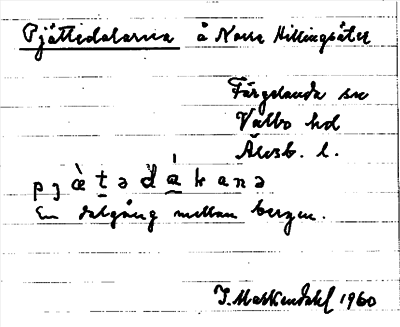 Pjättedalarna å Norra Hillingsäter
Färgelanda sn
Valbo hd
Älvsb. l.
En dalgång mellan bergen.
1960